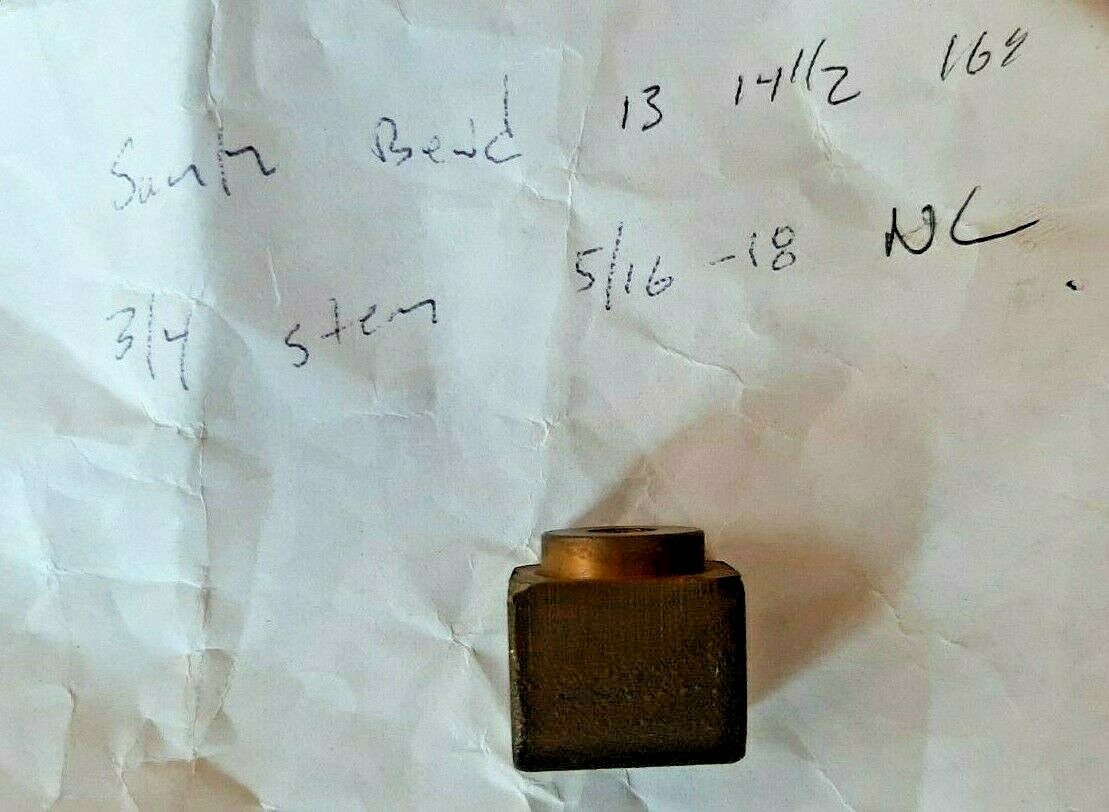 South Bend 13 14 1/2 16"
3/4 stem 5/16 -18 NC